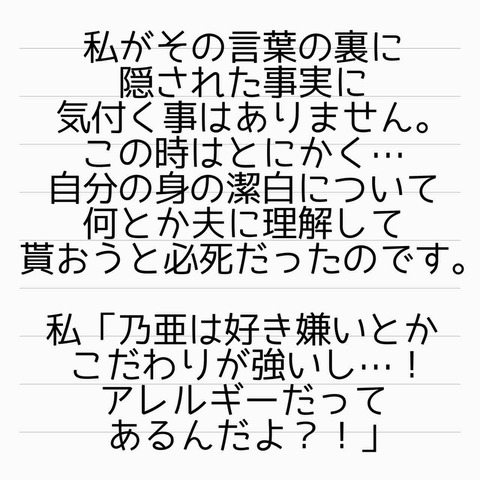 私がその言葉の裏に
隠された事実に
気付く事はありません。
この時はとにかく…
自分の身の潔白について
何とか夫に理解して
貰おうと必死だったのです。
私「乃亜は好き嫌いとか
こだわりが強いし…！
アレルギーだって
あるんだよ？！」